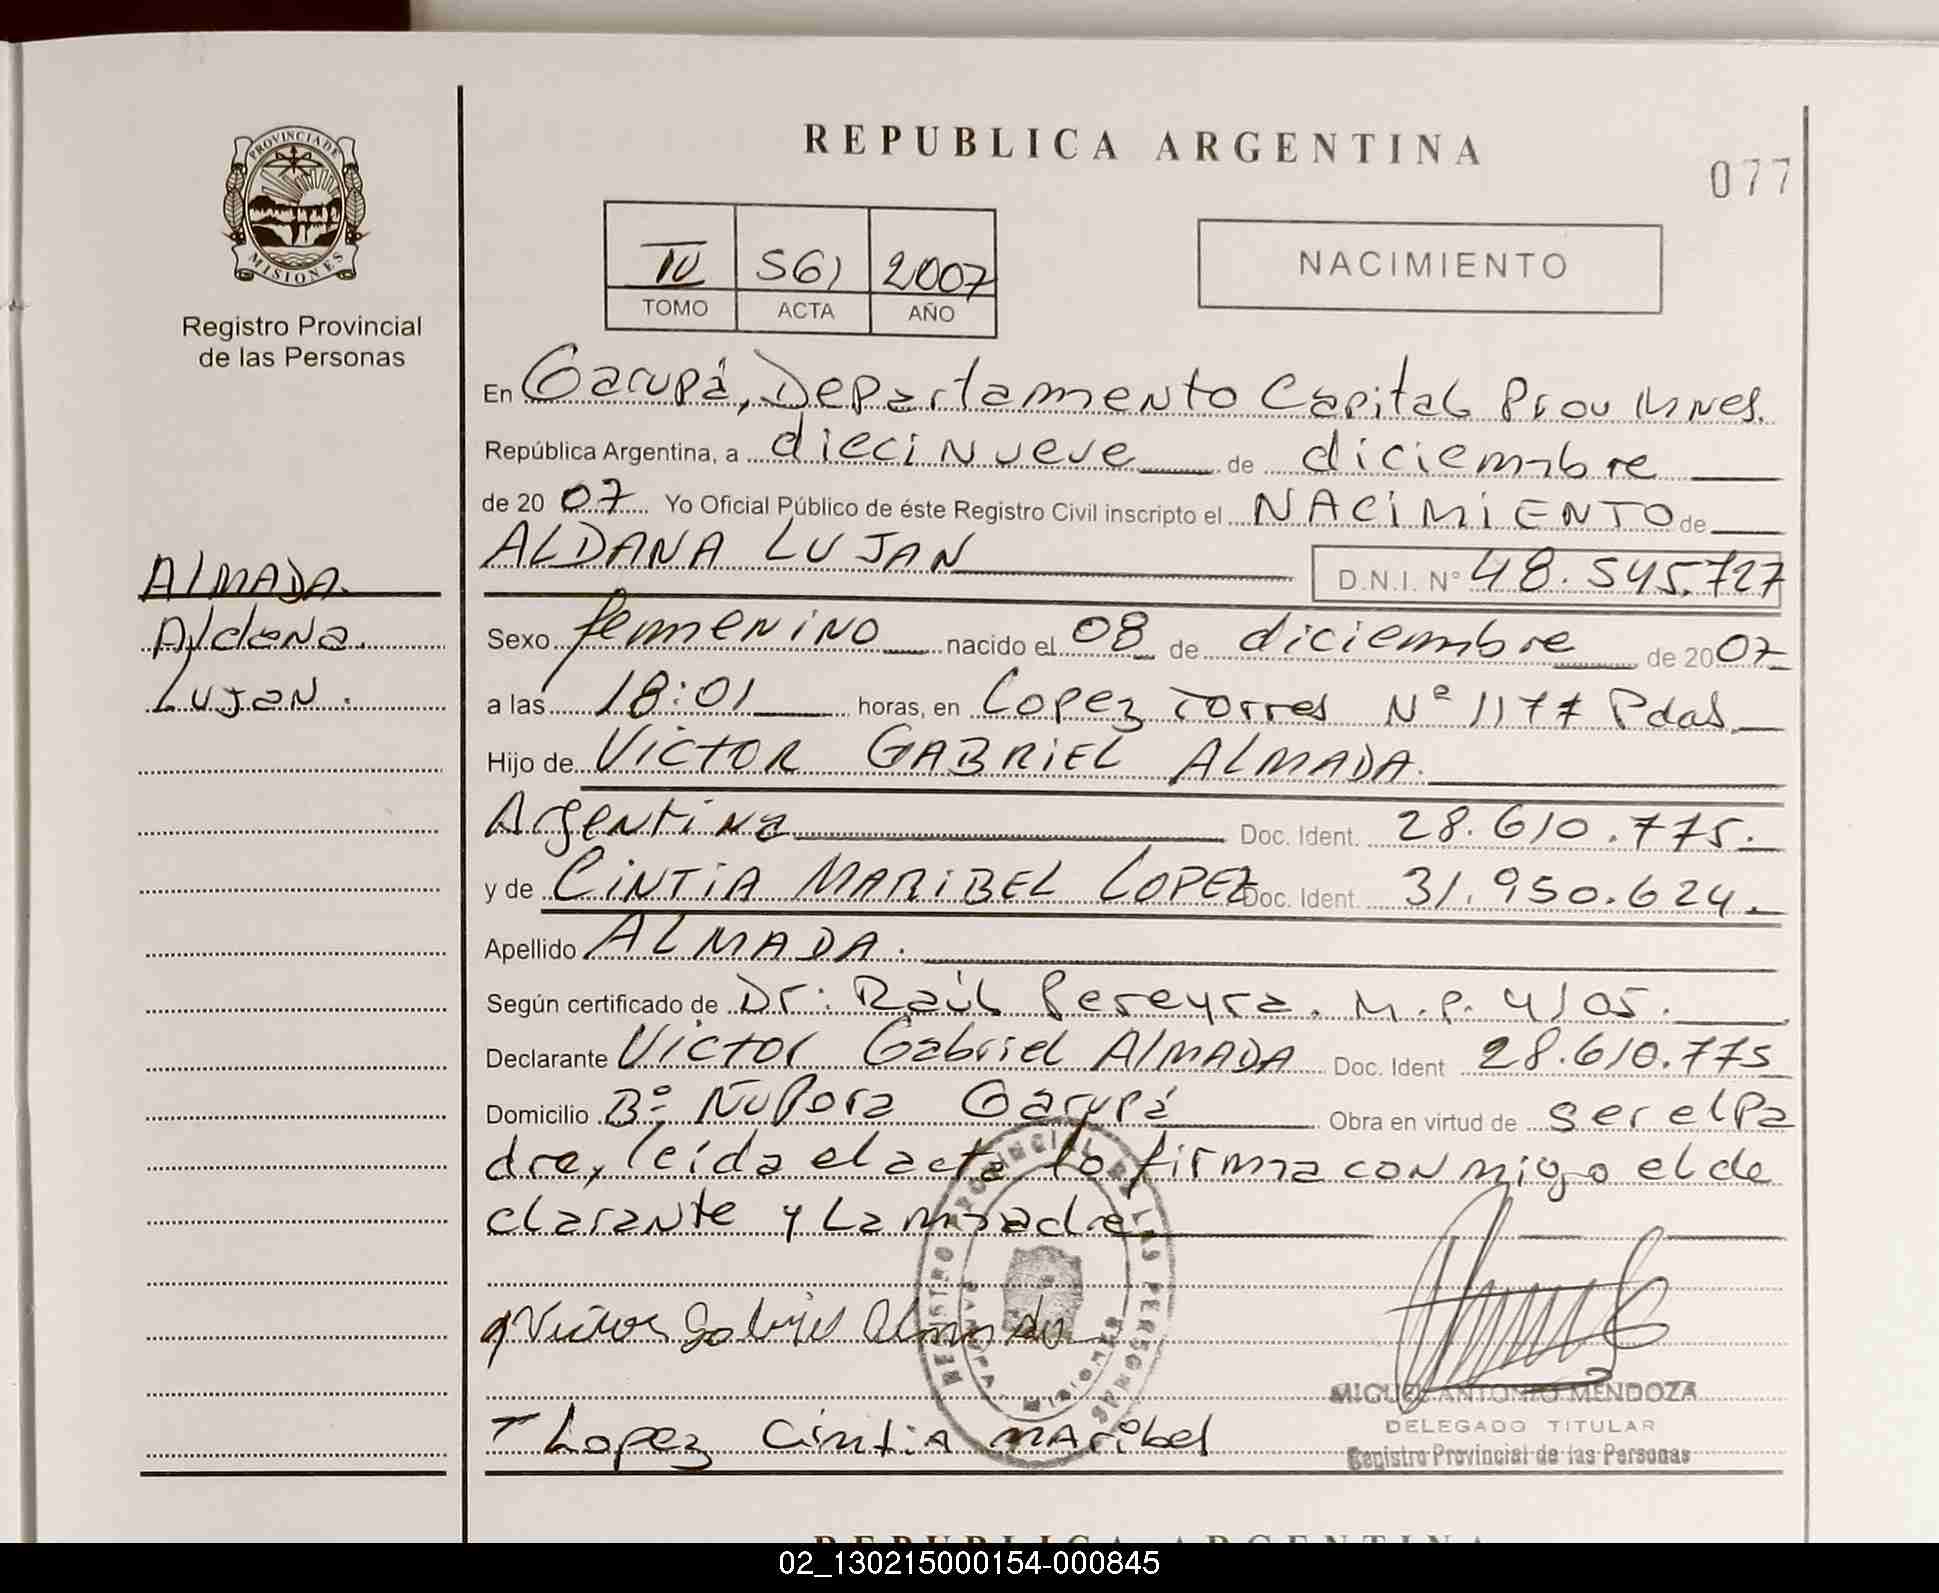 REPUBLICA ARGENTINA
077
PROVINCIA DE
MISIONES
Registro Provincial
de las Personas
IV 561 2007
TOMO ACTA AÑO
NACIMIENTO
En Garupá, Departamento Capital Prov Mnes.
República Argentina, a diecinueve de diciembre
de 2007 Yo Oficial Público de éste Registro Civil inscripto el NACIMIENTO de
ALDANA LUJAN D.N.I. Nº 48.545.727
ALMADA.
Aldana.
Lujan.
Sexo femenino nacido el 08 de diciembre de 2007
a las 18:01 horas, en Lopez Torres Nº 1177 Pdas
Hijo de VICTOR GABRIEL ALMADA.
Argentina Doc. Ident. 28.610.775.
y de CINTIA MARIBEL LOPEZ Doc. Ident. 31.950.624.
Apellido ALMADA.
Según certificado de Dr: Raúl Pereyra. M.P. 4105.
Declarante Victor Gabriel ALMADA Doc. Ident 28.610.775
Domicilio Bº Ñu Pora Garupá Obra en virtud de ser el Pa
dre, leída el acta lo firma conmigo el de
clarante y La madre.
REGISTRO PROVINCIAL DE LAS PERSONAS
Victor Gabriel Almada
Lopez Cintia Maribel
MIGUEL ANTONIO MENDOZA
DELEGADO TITULAR
Registro Provincial de las Personas
REPUBLICA ARGENTINA
02_130215000154-000845